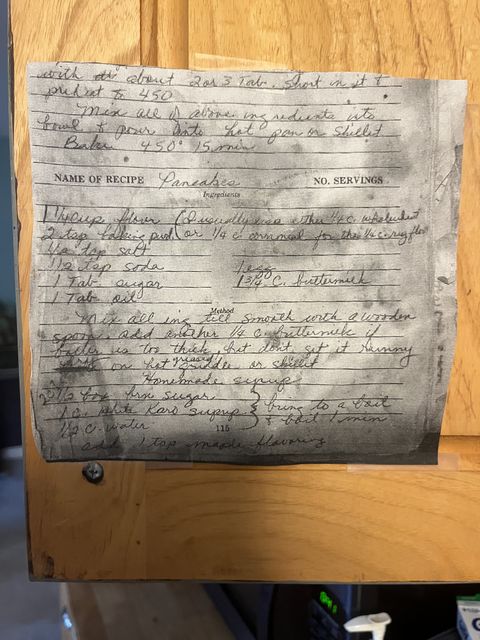 with about 2 or 3 Tab. short in it &
preheat to 450
Mix all of above ingredients into
bowl & pour into hot pan or skillet
Bake 450° 15 min
NAME OF RECIPE Pancakes NO. SERVINGS
Ingredients
1 1/4 cup flour (I usually use either 1/4 c. wholewheat
2 tsp baking pwd. or 1/4 c. cornmeal for the 1/4 c. reg flo
tsp salt
1/2 tsp soda 1 egg
1 Tab. sugar 1 3/4 C. buttermilk
1 Tab oil
Method
Mix all ing till smooth with a wooden
spoon. add another 1/4 C. buttermilk if
batter is too thick, but don't get it runny
on hot greased griddle or skillet
Homemade syrup
box brn sugar
1 C. white Karo syrup } bring to a boil
1/2 C. water & boil 1 min
115
add 1 tsp maple flavoring